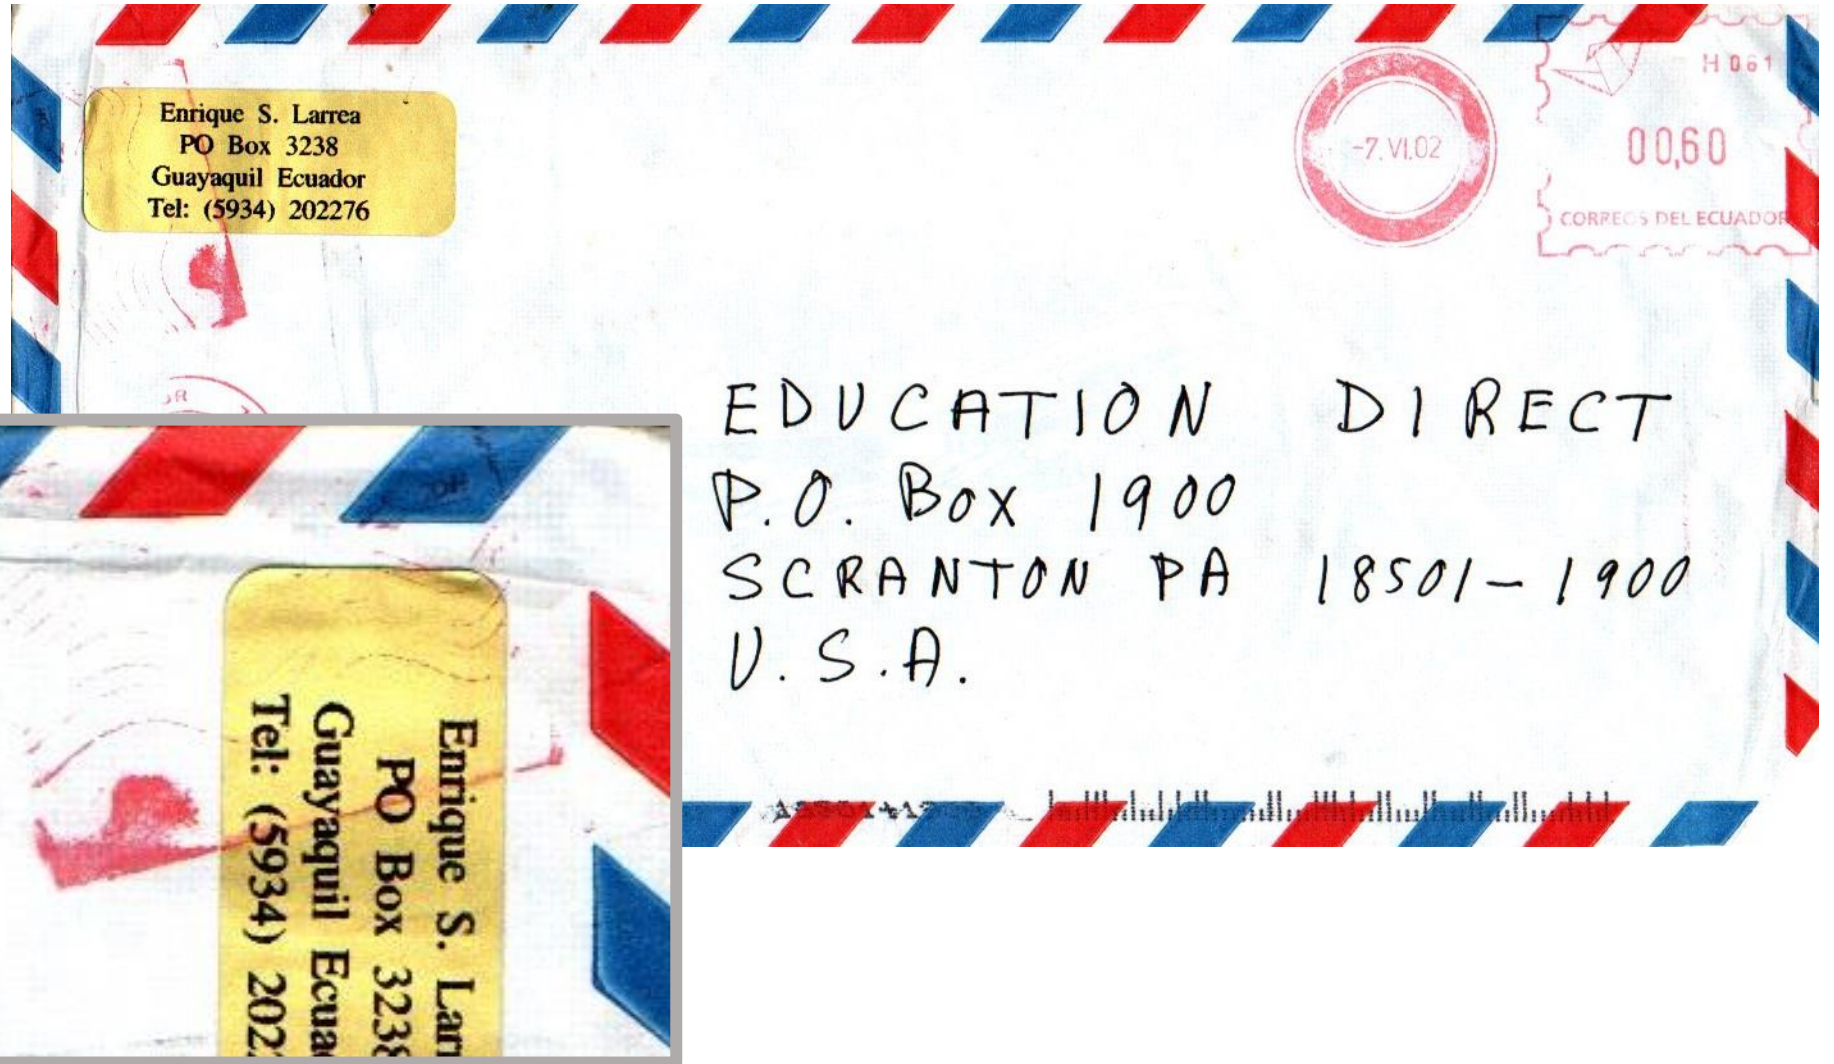 Enrique S. Larrea
PO Box 3238
Guayaquil Ecuador
Tel: (5934) 202276
-7.VI.02
H 061
00,60
CORREOS DEL ECUADOR
EDUCATION DIRECT
P.O. Box 1900
SCRANTON PA 18501-1900
U.S.A.
Enrique S. Larr
PO Box 3238
Guayaquil Ecua
Tel: (5934) 202